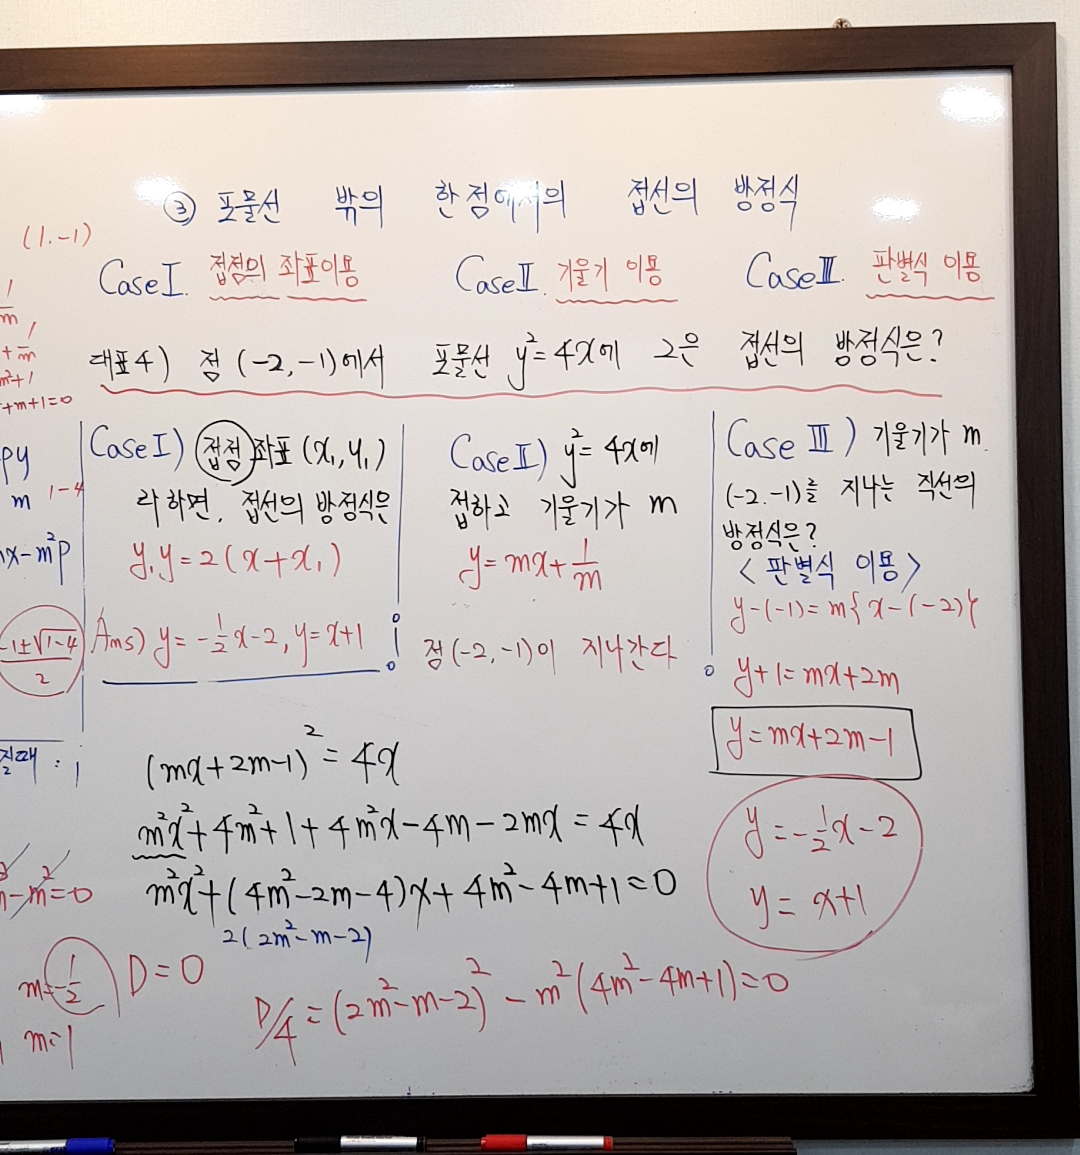 ③ 포물선 밖의 한 점에서의 접선의 방정식
(1.-1)
Case I. 접점의 좌표이용
Case II. 기울기 이용
Case III. 판별식 이용
대표4) 점 (-2, -1)에서 포물선 y²=4x에 그은 접선의 방정식은?
Case I) 접점 좌표 (x₁, y₁)
라 하면, 접선의 방정식은
y₁y=2(x+x₁)
Ans) y=-1/2x-2, y=x+1
Case II) y²=4x에
접하고 기울기가 m
y=mx+1/m
점(-2, -1)이 지나간다
Case III) 기울기가 m.
(-2.-1)를 지나는 직선의
방정식은?
<판별식 이용>
y-(-1)=m{x-(-2)}
y+1=mx+2m
y=mx+2m-1
y=-1/2x-2
y=x+1
(mx+2m-1)²=4x
m²x²+4m²+1+4m²x-4m-2mx=4x
m²x²+(4m²-2m-4)x+4m²-4m+1=0
2(2m²-m-2)
D=0
D/4=(2m²-m-2)²-m²(4m²-4m+1)=0
1/m
+1/m
m²+1
+m+1=0
py
m
1-4
x-m²p
-1±√1-4/2
-m²=0
m=-1/2
m=1